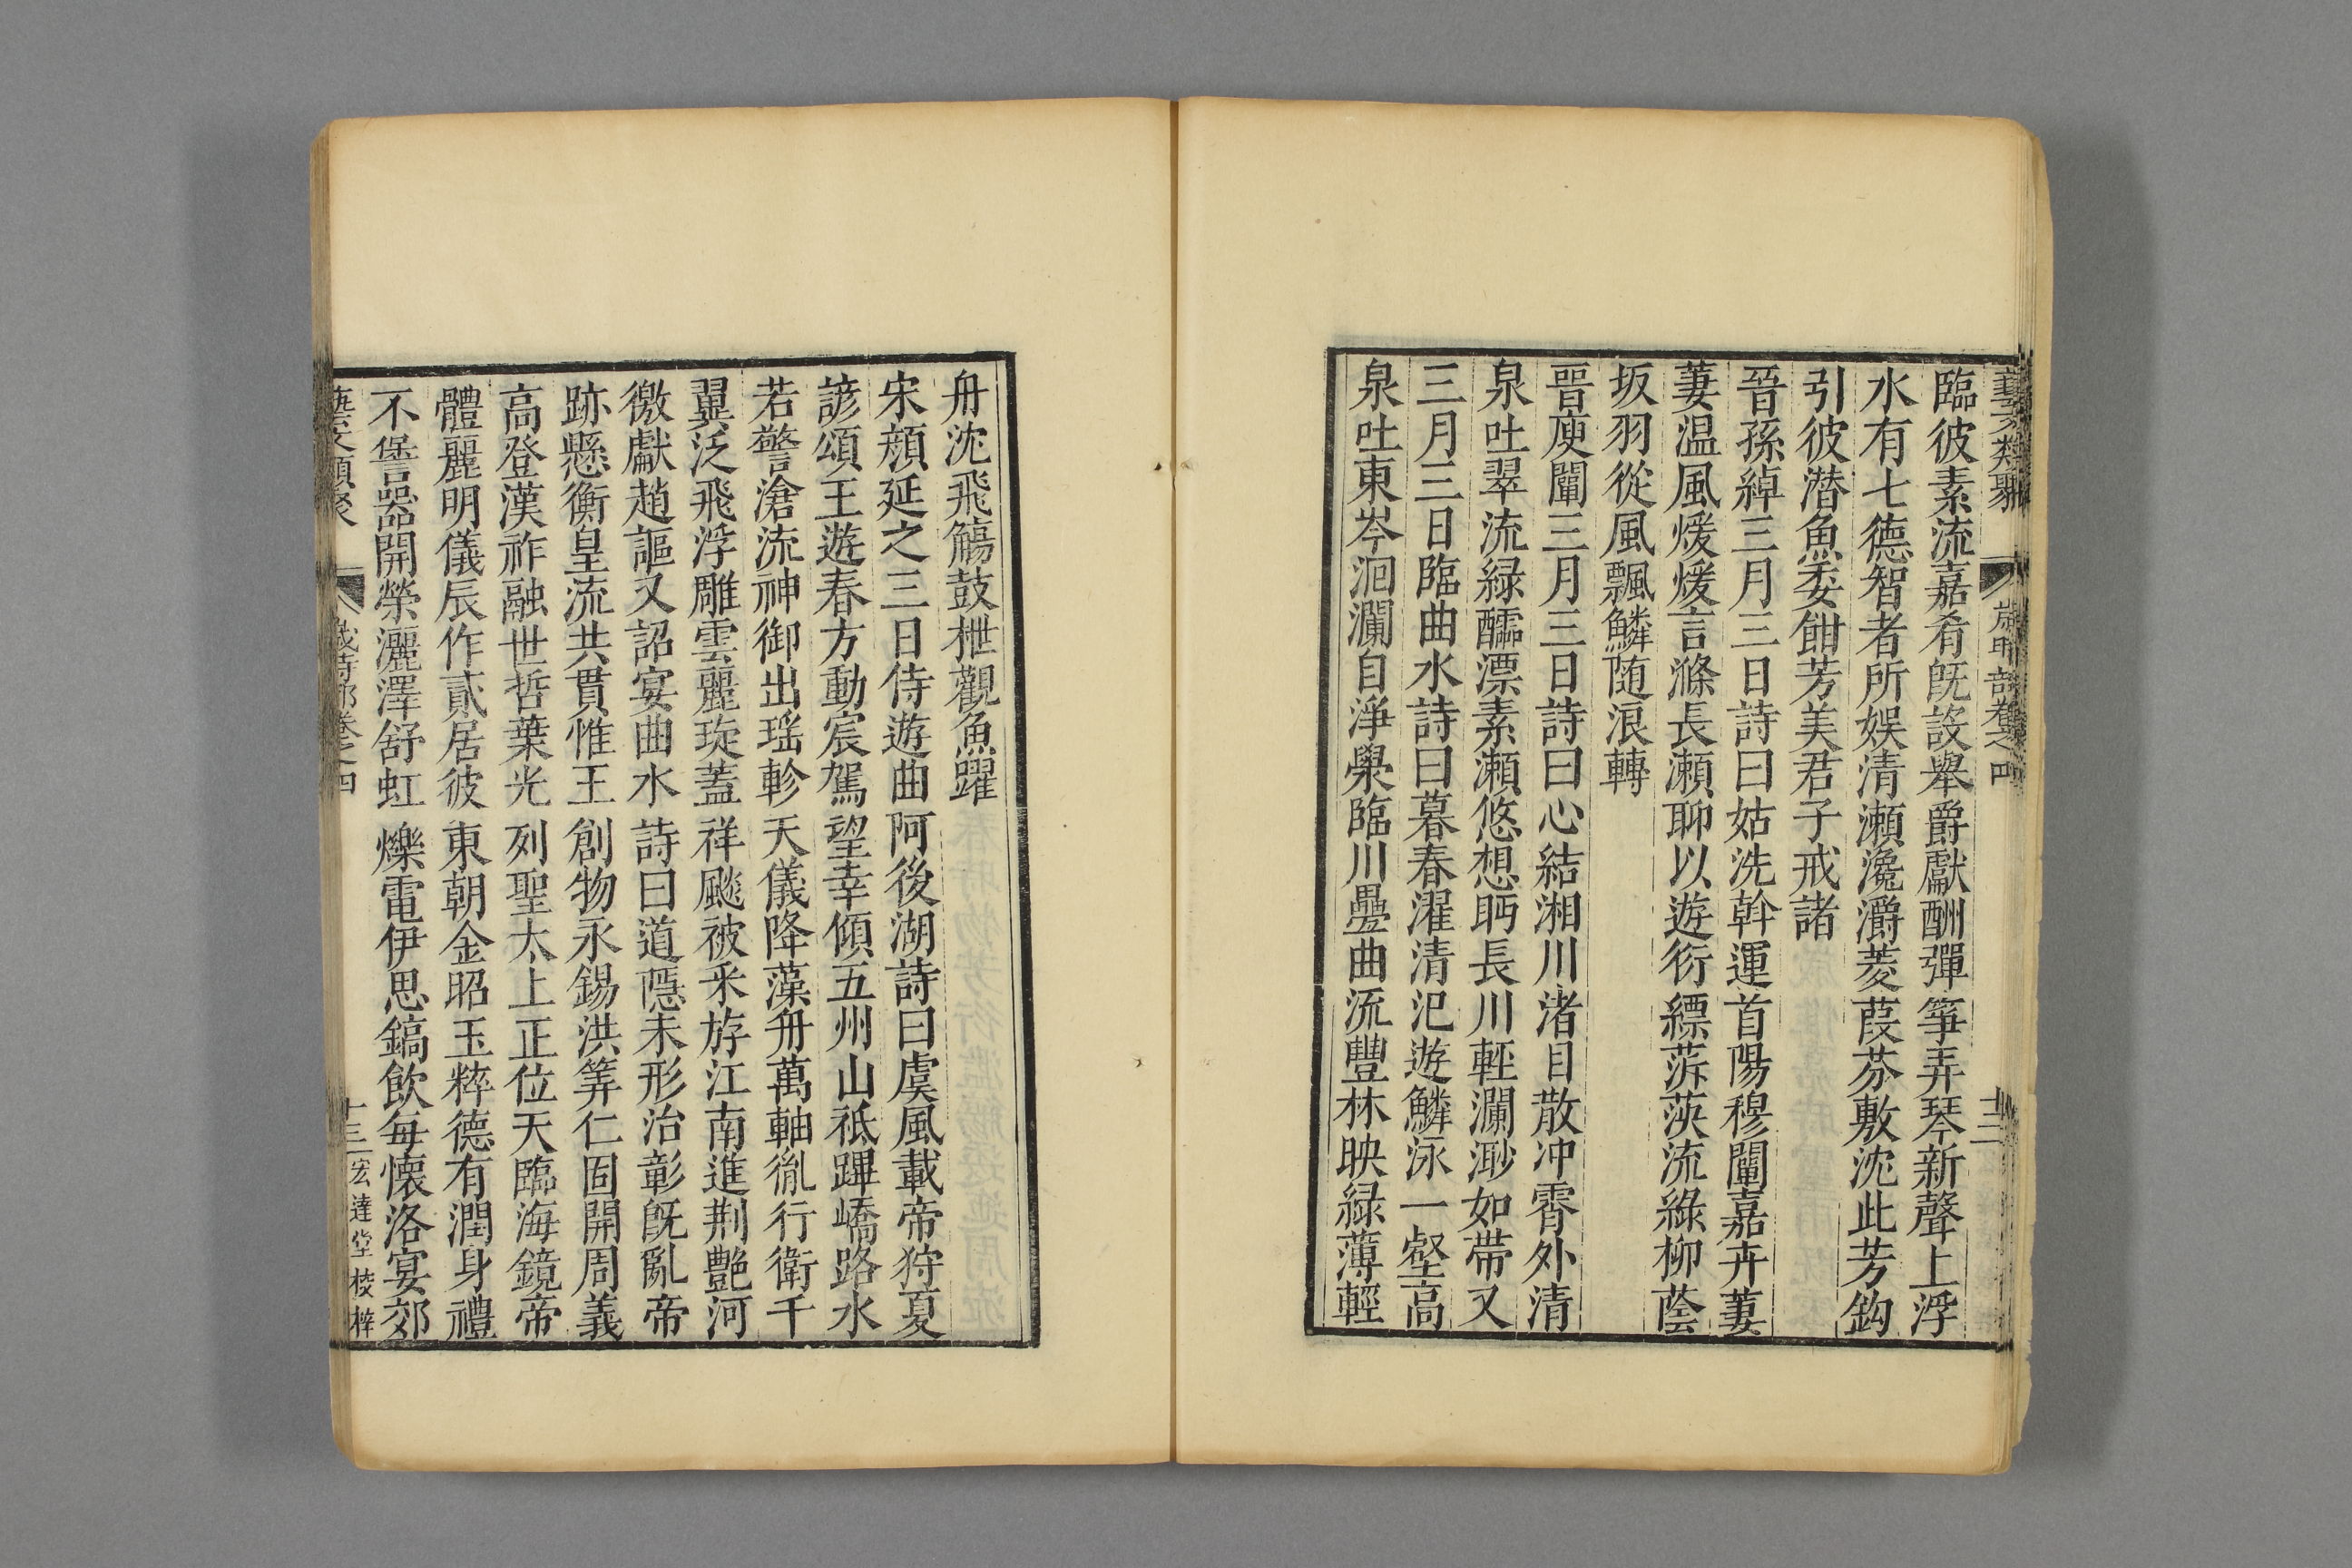 藝文類聚 歲時部卷之四 十三
臨彼素流嘉肴既設舉爵獻酬彈箏弄琴新聲上浮
水有七德智者所娱清瀬瀺灂菱葭芬敷沈此芳鈎
引彼潜魚委餌芳美君子戒諸
晉孫綽三月三日詩曰姑洗斡運首陽穆闡嘉卉萋
萋温風煖煖言滌長瀬聊以遊衍縹蓱漪流綠柳蔭
坂羽從風飄鱗随浪轉
晉庾闡三月三日詩曰心結湘川渚目散冲霄外清
泉吐翠流緑醽漂素瀬悠想眄長川輕瀾渺如帶又
三月三日臨曲水詩曰暮春濯清汜遊鱗泳一壑高
泉吐東岑洄瀾自淨㶑臨川疊曲流豐林映緑薄輕
舟沈飛觴鼓枻觀魚躍
宋顏延之三日侍遊曲阿後湖詩曰虞風載帝狩夏
諺頌王遊春方動宸駕望幸傾五州山祗蹕嶠路水
若警滄流神御出瑶軫天儀降藻舟萬軸胤行衛千
翼泛飛浮雕雲麗琁蓋祥飈被釆斿江南進荆艶河
徼獻趙謳又詔宴曲水詩曰道隱未形治彰既亂帝
跡懸衡皇流共貫惟王創物永錫洪筭仁固開周義
高登漢祚融世哲葉光列聖太上正位天臨海鏡帝
體麗明儀辰作貳居彼東朝金昭玉粹德有潤身禮
不諐器開榮灑澤舒虹爍電伊思鎬飲每懷洛宴郊
藝文類聚 歲時部卷之四 十三 宏達堂校梓